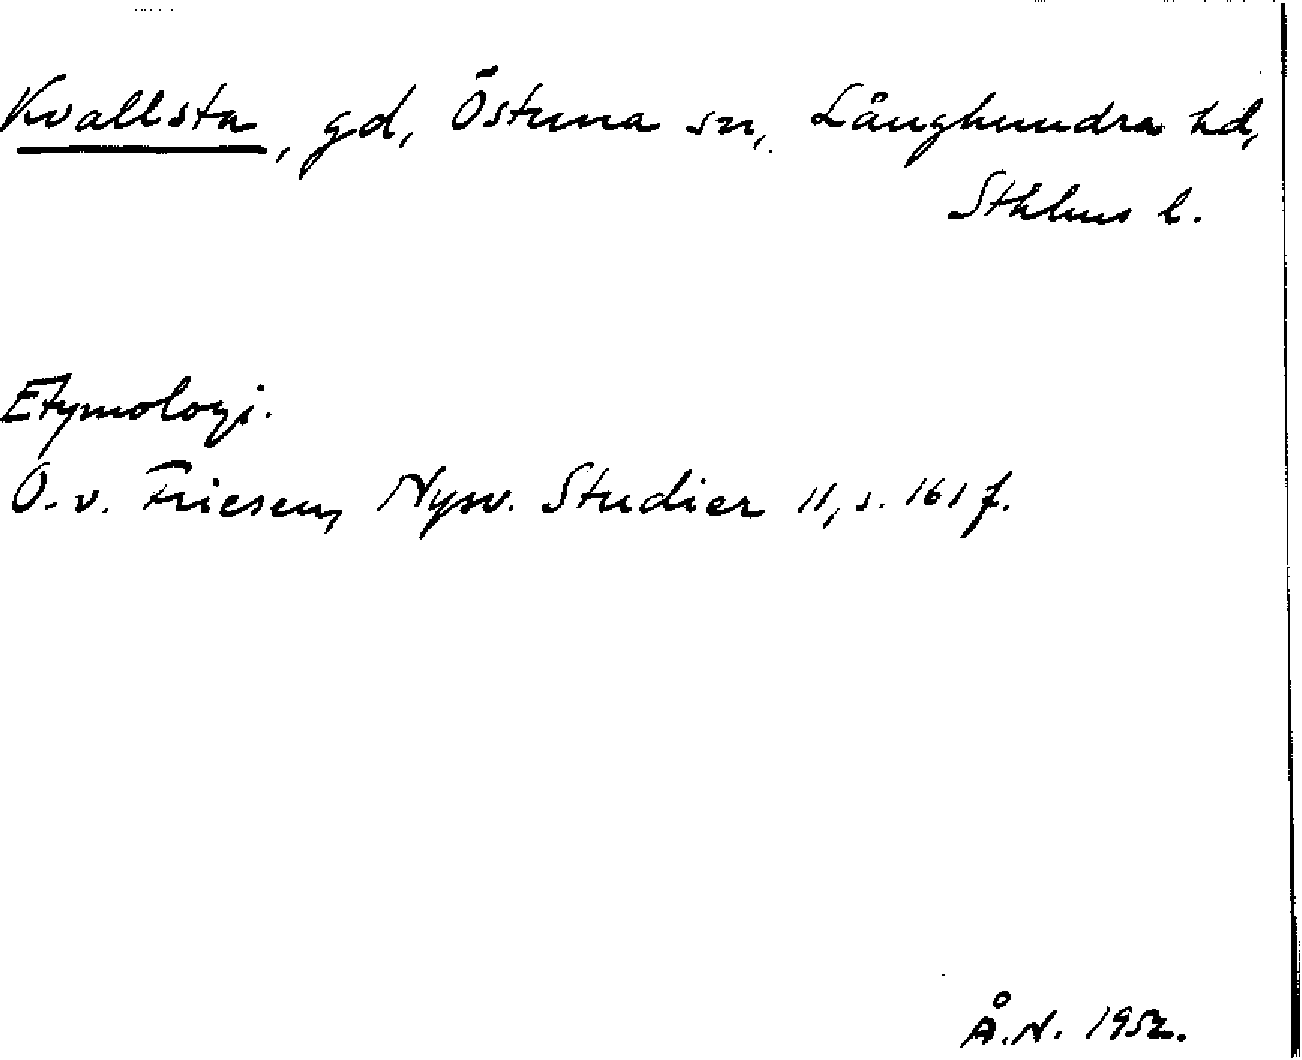 Kvallsta, gd, Östuna sn, Långhundra hd,
Sthlms l.
Etymologi.
O. v. Friesen, Nysv. Studier 11, s. 161 f.
Å.N. 1952.